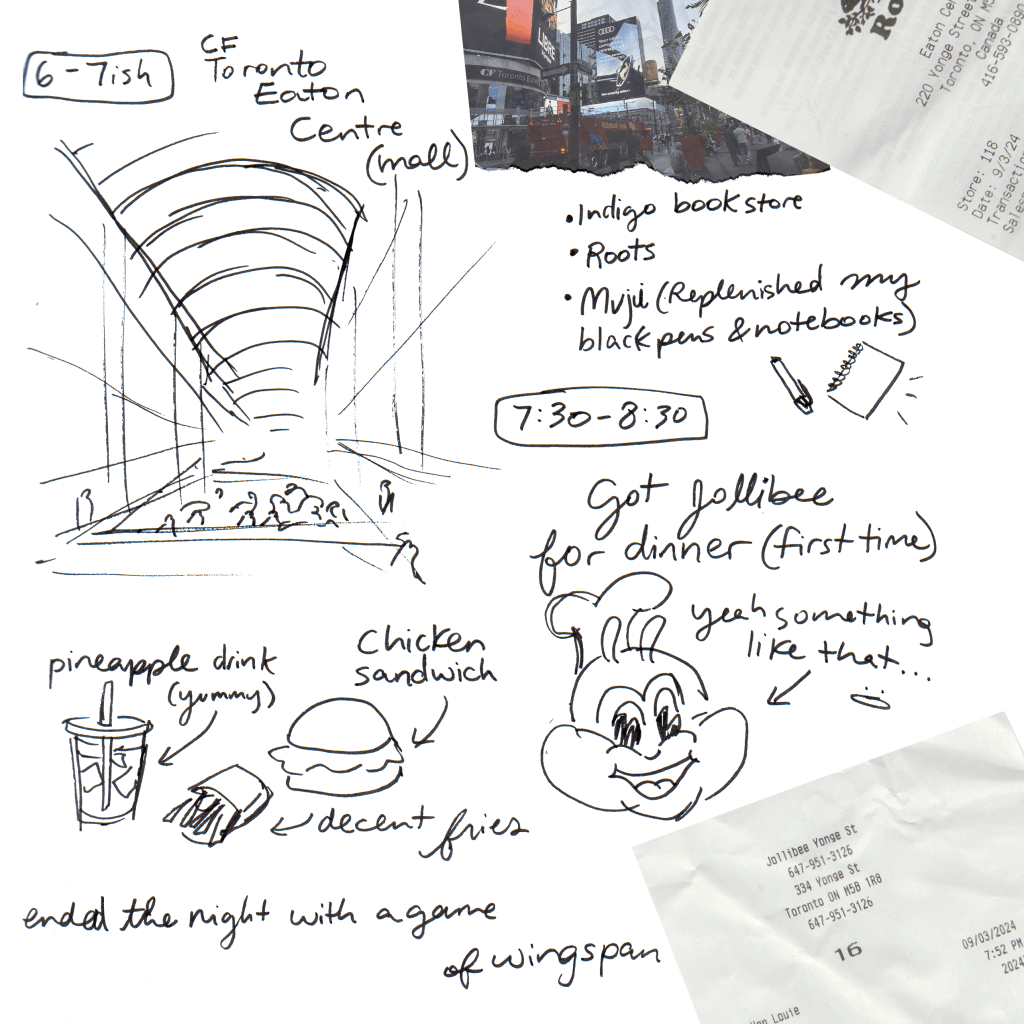 6-7ish
CF
Toronto
Eaton
Centre
(mall)
LIBRE
CF Toronto Eaton
Ro
Eaton Cen
220 Yonge Street
Toronto, ON M5
Canada
416-593-0890
Store: 118
Date: 9/3/24
Transaction
Sales
• Indigo bookstore
• Roots
• Muji (Replenished my
black pens & notebooks)
7:30-8:30
Got Jollibee
for dinner (first time)
yeah something
like that...
pineapple drink
(yummy)
Chicken
sandwich
decent fries
ended the night with a game
of wingspan
Jollibee Yonge St
647-951-3126
334 Yonge St
Toronto ON M5B 1R8
647-951-3126
16
09/03/2024
7:52 PM
2024
Louie